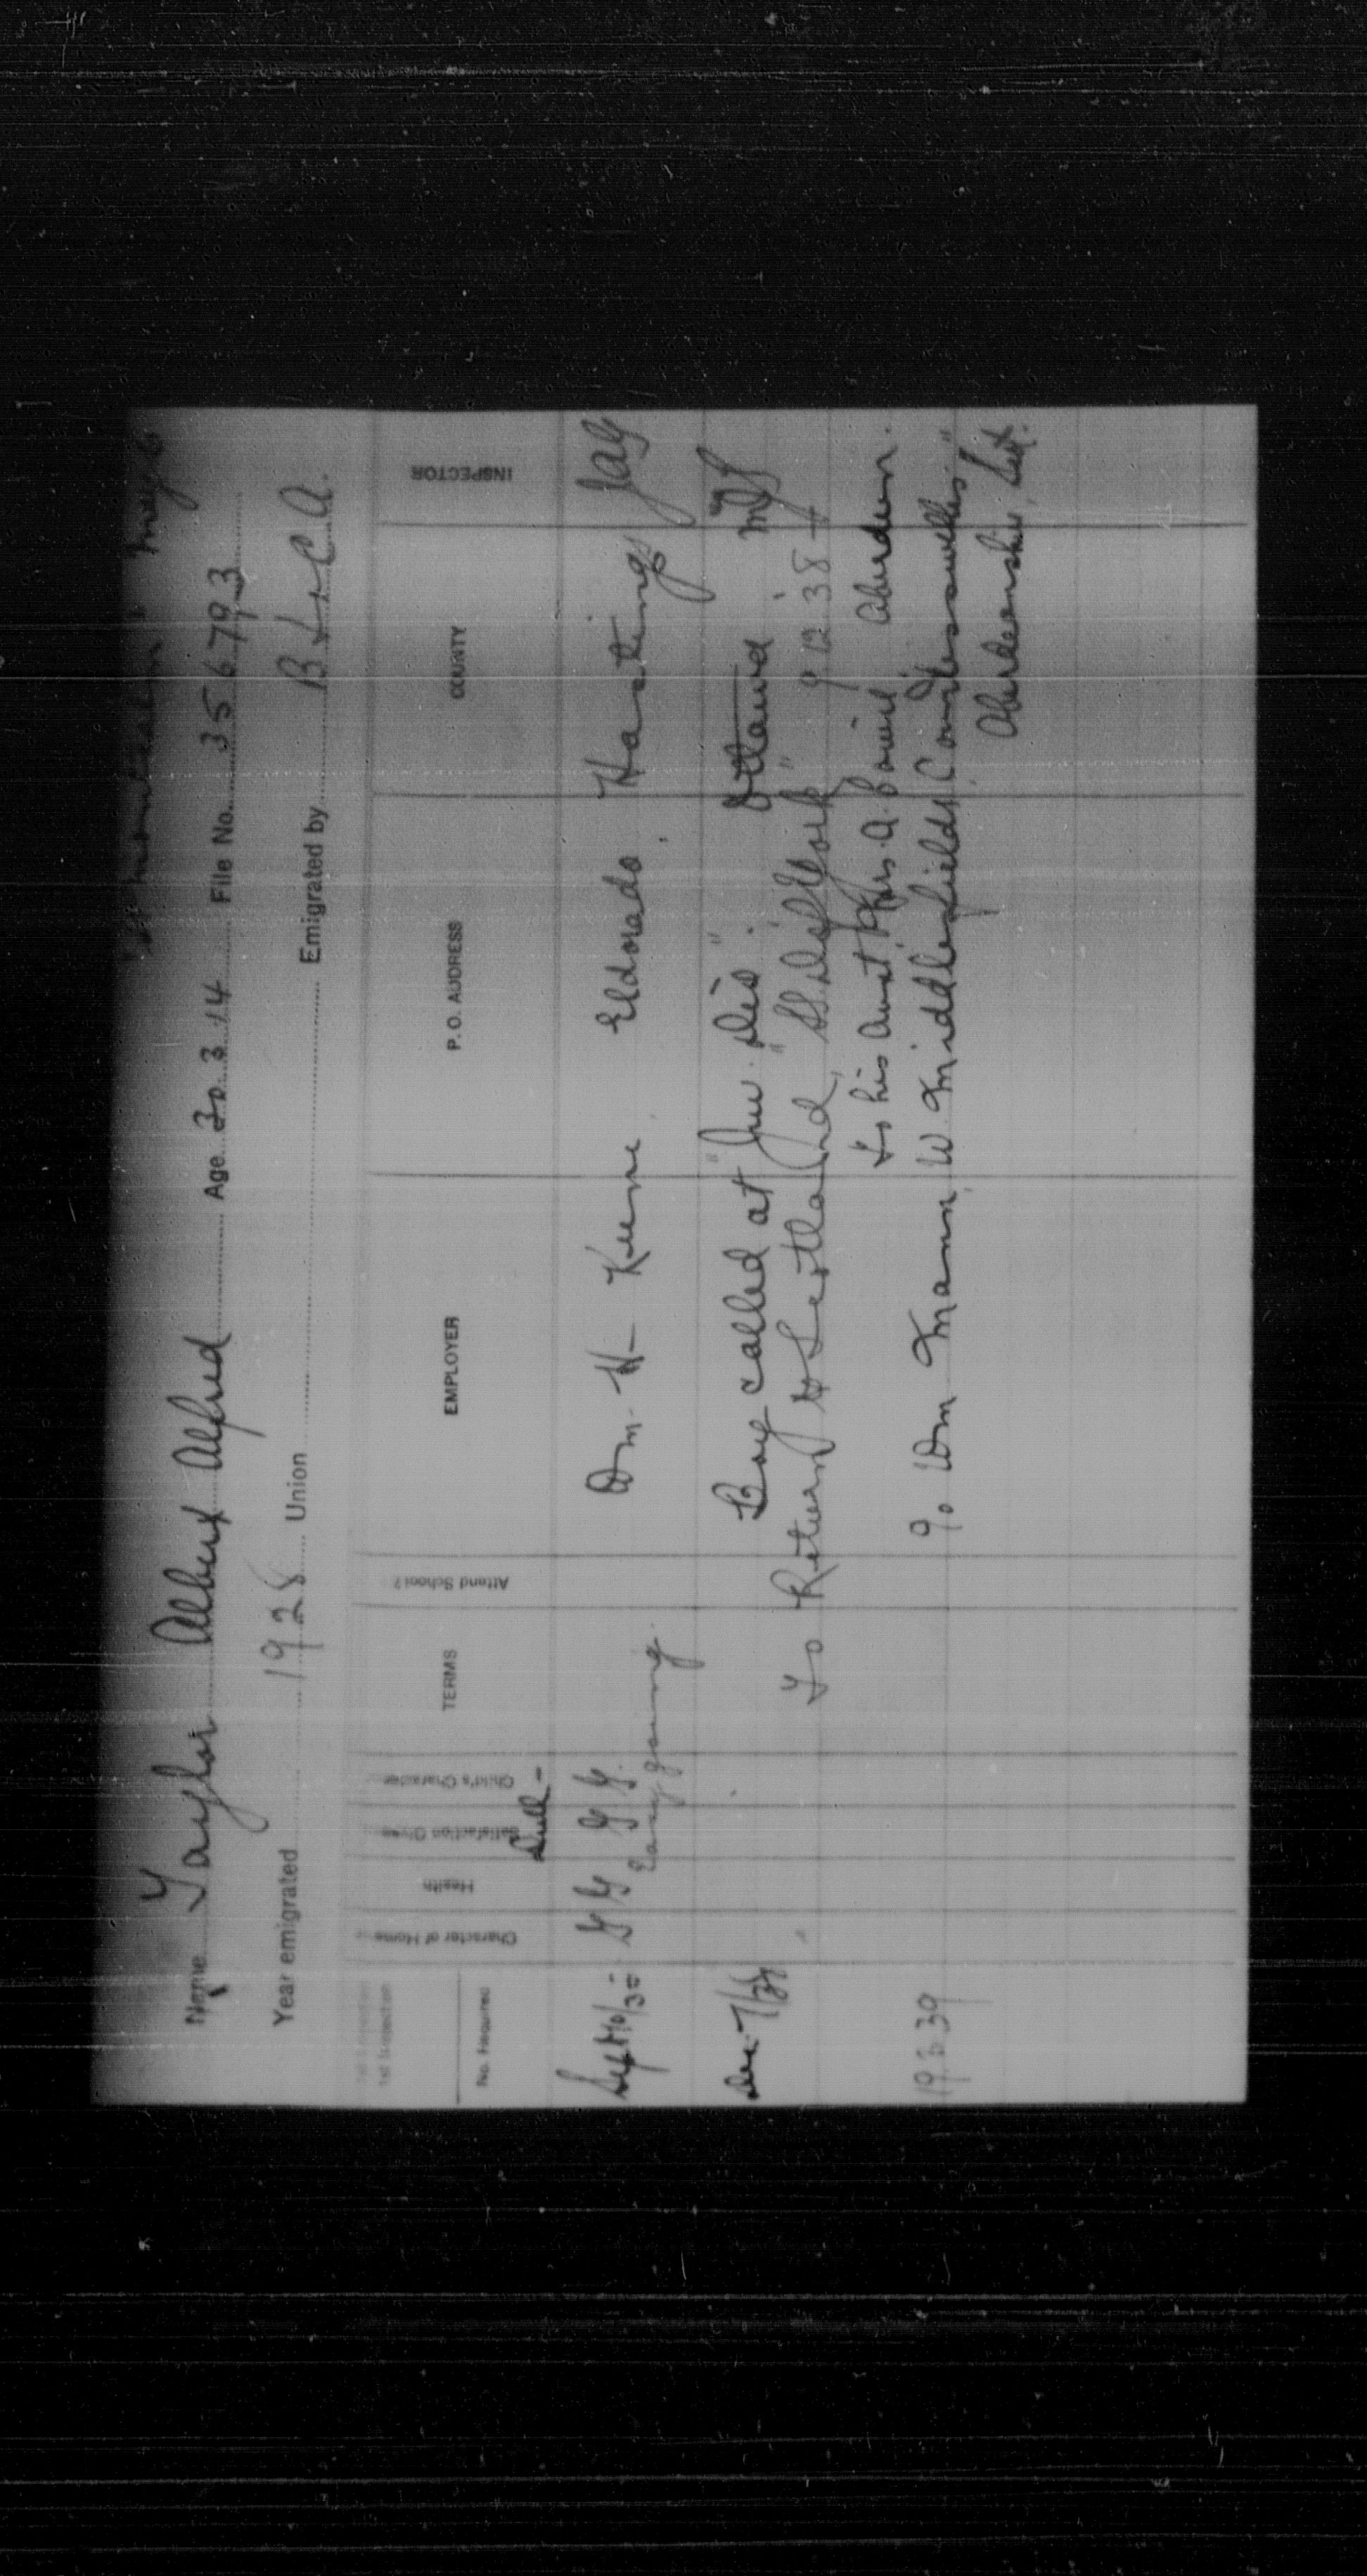 Name Taylor Albert Alfred Age 30 3 14 File No. 356793
Year emigrated 1928 Union Emigrated by B.I.C.A.
1st Inspection
No. Required
Character of Home
Health
Satisfaction Given
Child's Character
TERMS
Attend School?
EMPLOYER
P. O. ADDRESS
COUNTY
INSPECTOR
Dull -
Sept 10/30 G G G G Wm. H. Keene Eldorado, Hastings JAG
Easy going
Dec 7/38 Boy called at "Imm. Dis." Ottawa
To Return to Scotland, "9 12 38
to his Aunt Mrs. A. Bowie, Aberdeen.
c/o Wm Mann, W. Middlefield,
19 3 39
Aberdeenshire, Scot.